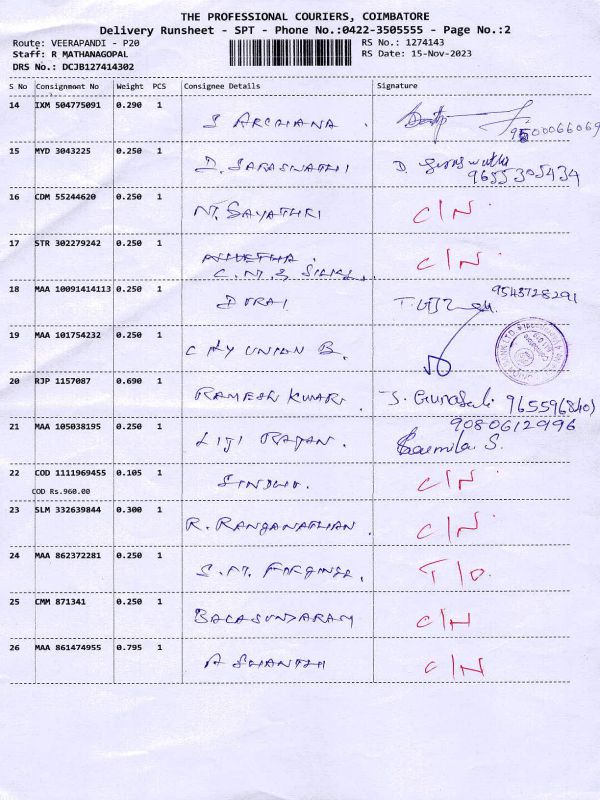 THE PROFESSIONAL COURIERS, COIMBATORE
Delivery Runsheet - SPT - Phone No.:0422-3505555 - Page No.:2
Route: VEERAPANDI - P20 RS No.: 1274143
Staff: R MATHANAGOPAL RS Date: 15-Nov-2023
DRS No.: DCJB127414302
S No Consignment No Weight PCS Consignee Details Signature
14 IXM 504775091 0.290 1 S ARCHANA.
9500066069
15 MYD 3043225 0.250 1 D. SARASWATHI D.
9655305434
16 CDM 55244620 0.250 1 C/N
17 STR 302279242 0.250 1 C/N
18 MAA 10091414113 0.250 1 DURAI 9543728291
19 MAA 101754232 0.250 1 CITY UNION B.
20 RJP 1157087 0.690 1 RAMESH KUMAR.
21 MAA 105038195 0.250 1 9080612996
LIJI RAJAN. S.
22 COD 1111969455 0.105 1 SINDHU. C/N
COD Rs.960.00
23 SLM 332639844 0.300 1 R. RANGANATHAN. C/N
24 MAA 862372281 0.250 1 T/O.
25 CMM 871341 0.250 1 BALASUNDARAM C/N
26 MAA 861474955 0.795 1 C/N